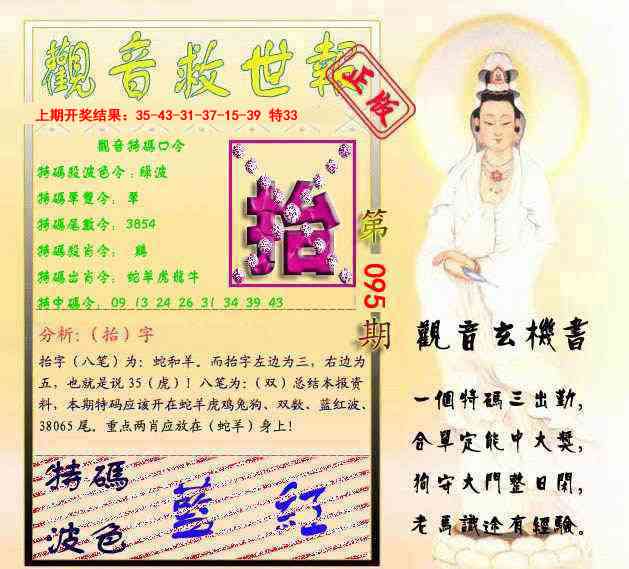 觀音救世報
正版
上期开奖结果：35-43-31-37-15-39 特33
觀音特碼口令
特碼殺波色令：綠波
特碼單雙令：單
特碼尾數令：3854
特碼殺肖令： 鷄
特碼出肖令：蛇羊虎龍牛
特中碼令：09 13 24 26 31 34 39 43
抬
第095期
分析：（抬）字
抬字（八笔）为：蛇和羊。而抬字左边为三，右边为
五，也就是说35（虎）！八笔为：（双）总结本报资
料，本期特码应该开在蛇羊虎鸡兔狗、双数、蓝红波、
38065尾。重点两肖应放在（蛇羊）身上！
特碼
波色
藍 紅
觀音玄機書
一個特碼三出勤，
合單定能中大獎，
狗守大門整日閑，
老馬識途有經驗。